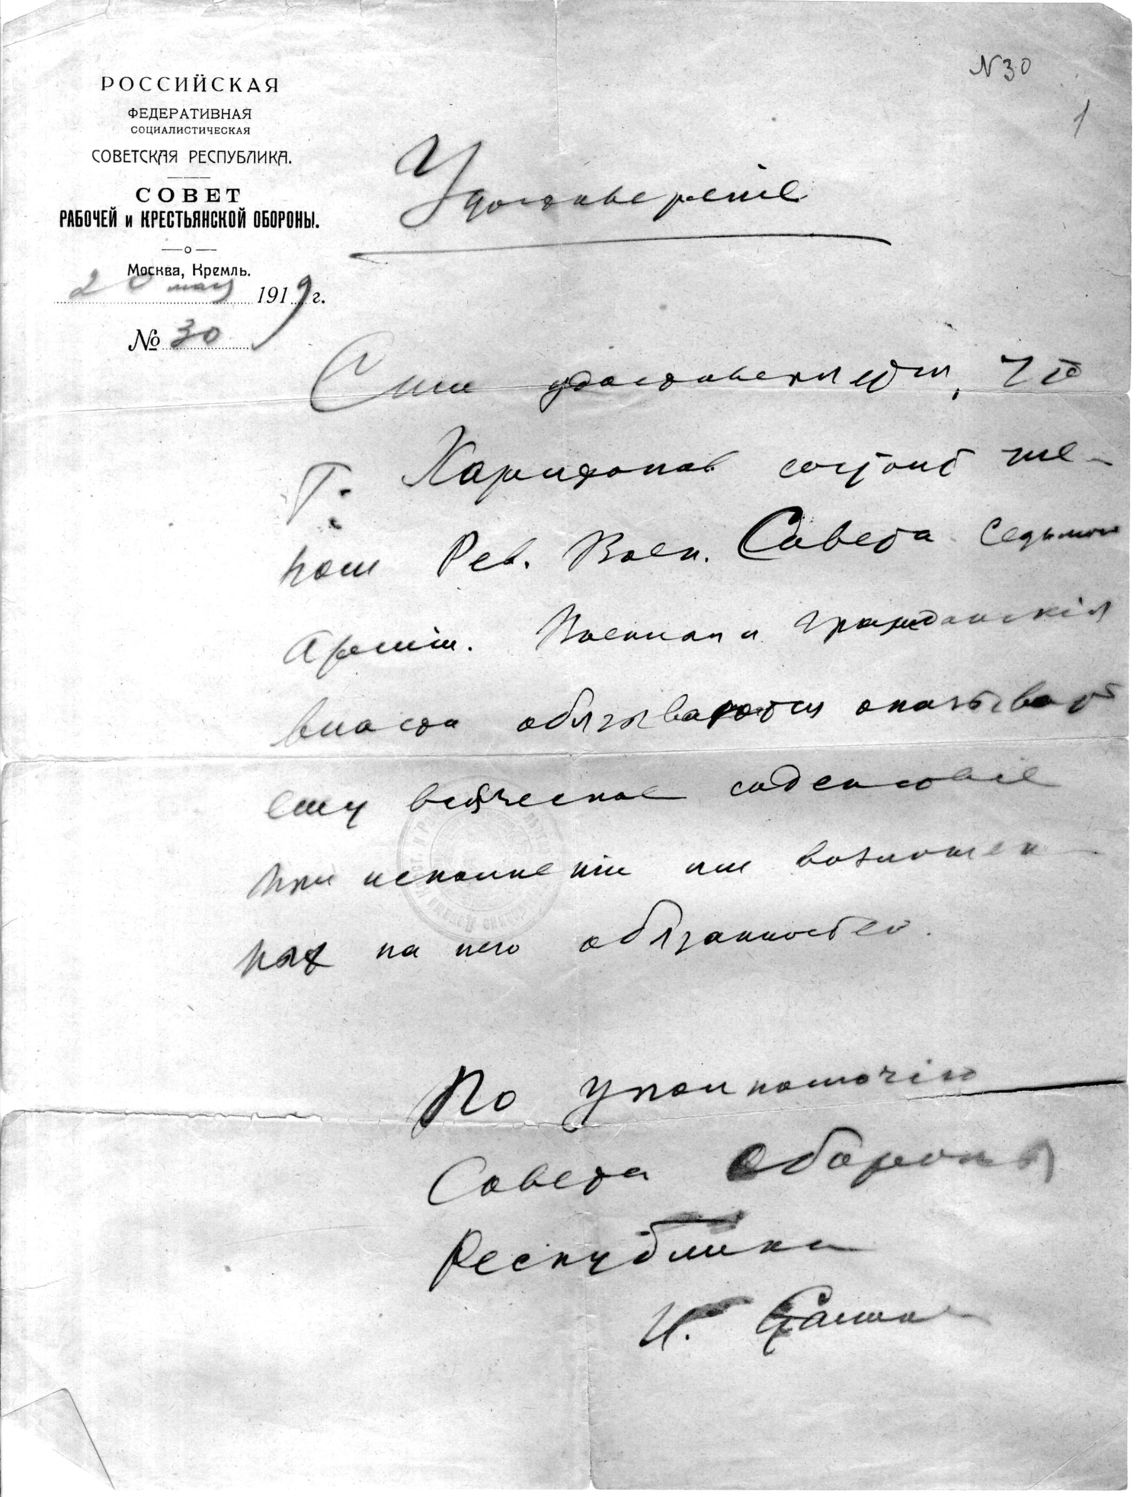 N 30
1
РОССИЙСКАЯ
ФЕДЕРАТИВНАЯ
СОЦИАЛИСТИЧЕСКАЯ
СОВЕТСКАЯ РЕСПУБЛИКА.
СОВЕТ
РАБОЧЕЙ и КРЕСТЬЯНСКОЙ ОБОРОНЫ.
Москва, Кремль.
20 мая 1919 г.
№ 30
Удостоверенiе
Сим удостоверяется, что
т. Харитонов состоит чле-
ном Рев. Воен. Совета Седьмой
Армiи. Военныя и гражданскiя
власти обязываются оказывать
ему всяческое содействiе
при исполненiи им возложен-
ных на него обязанностей.
По уполномочiю
Совета Обороны
Республики
И. Сталин